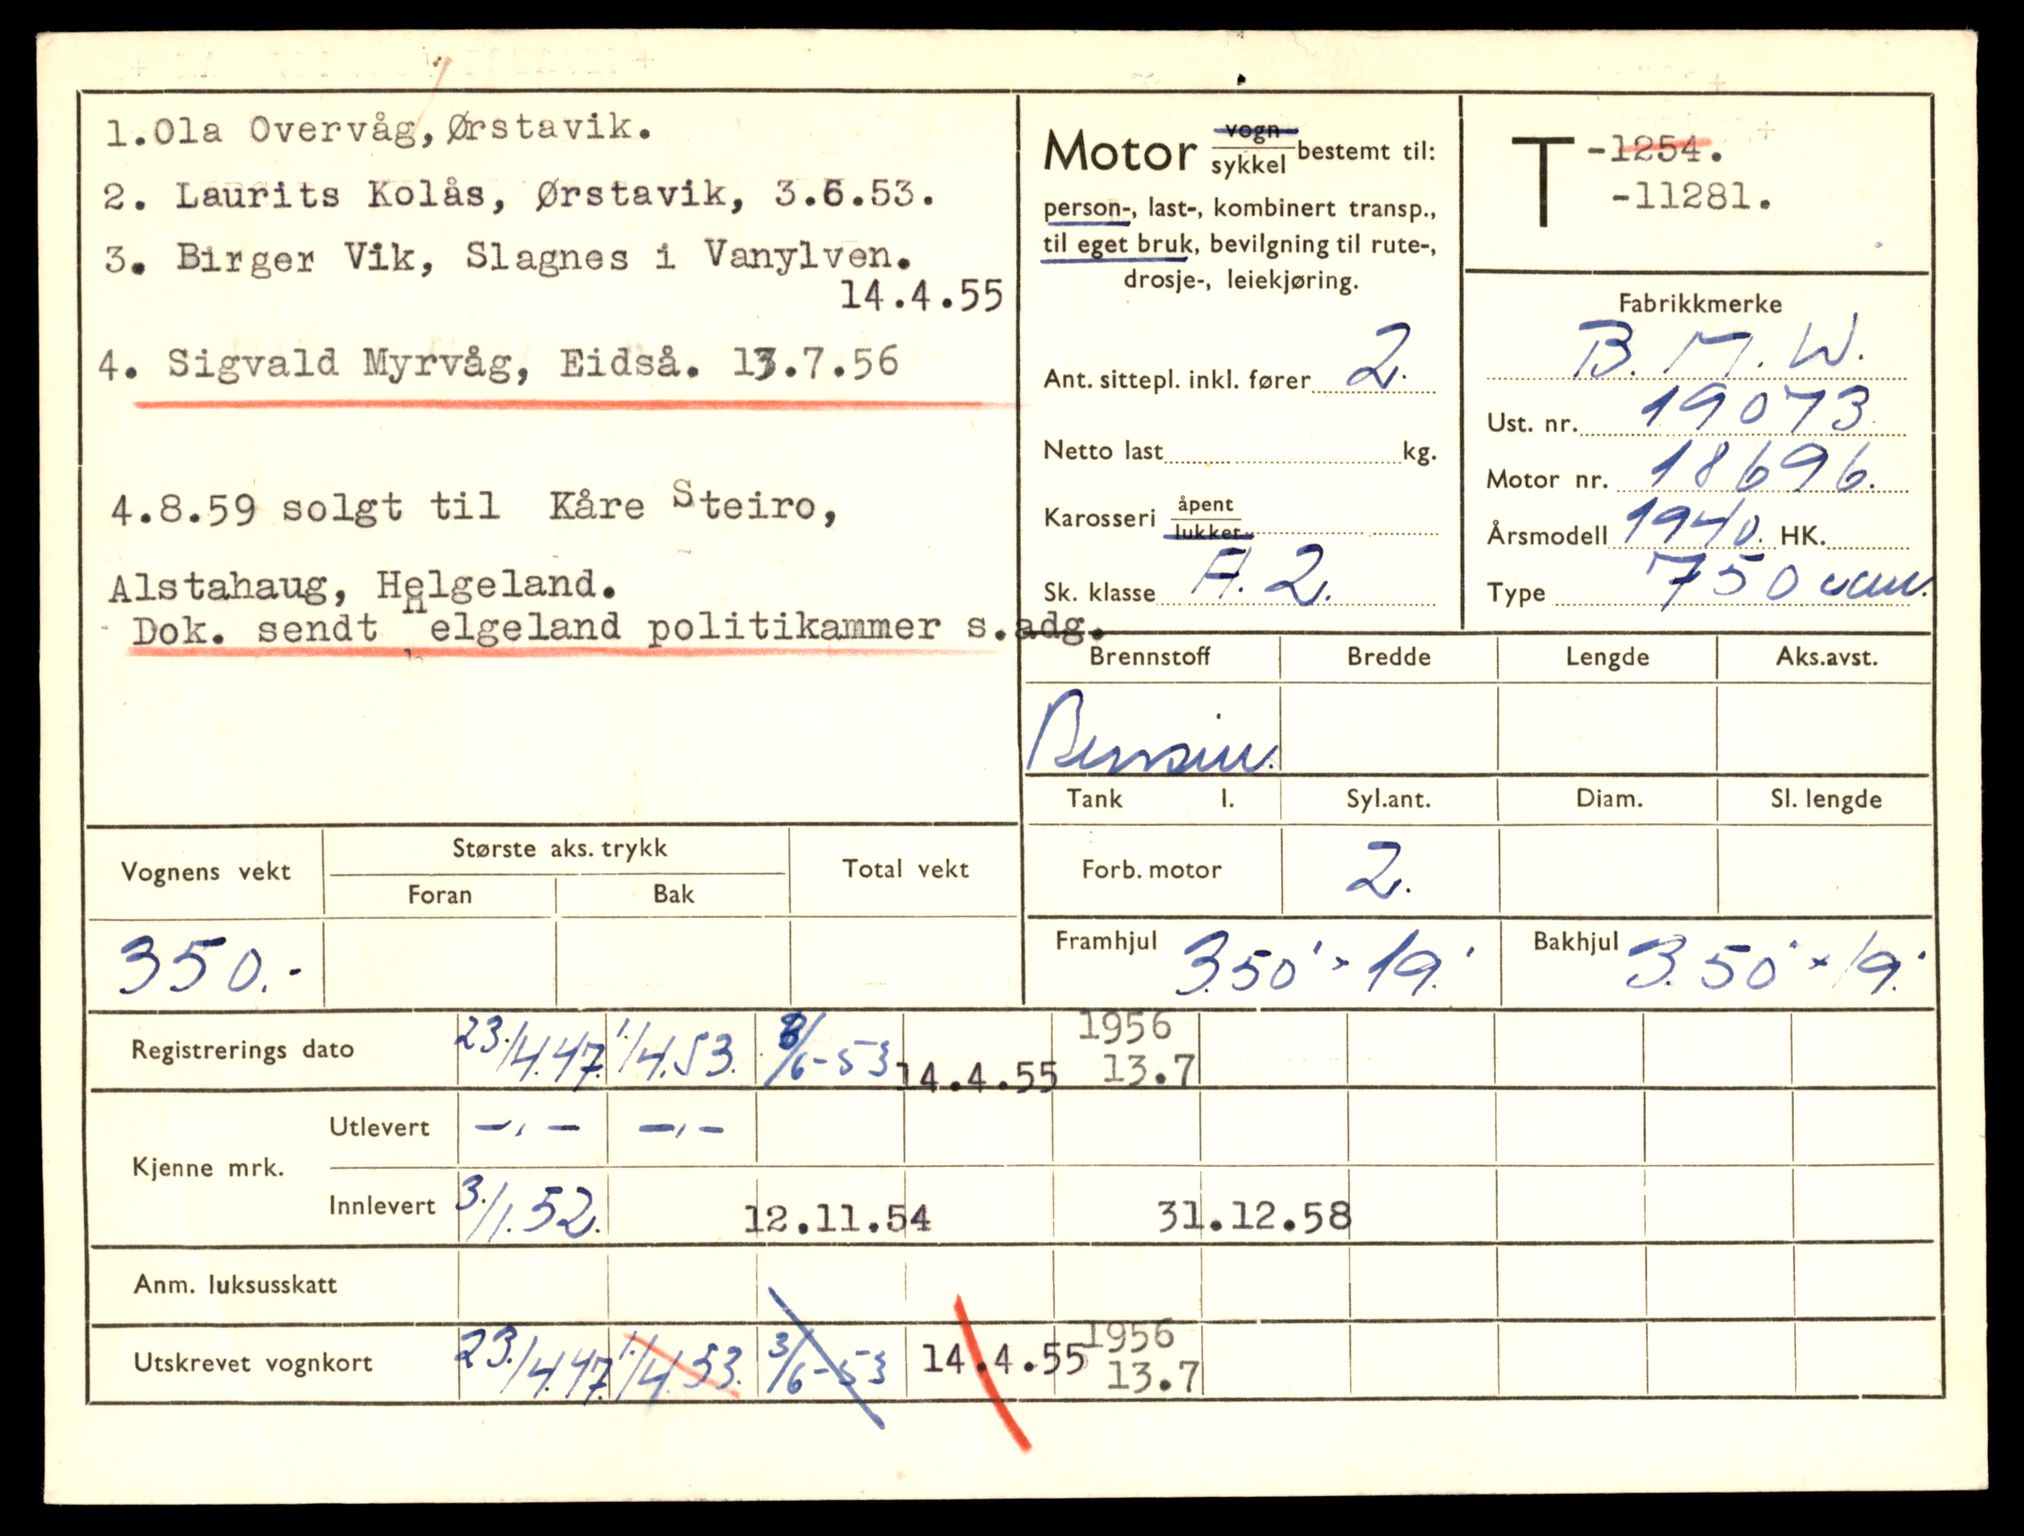 1.Ola Overvåg, Ørstavik.
2. Laurits Kolås, Ørstavik, 3.6.53.
3. Birger Vik, Slagnes i Vanylven.
14.4.55
4. Sigvald Myrvåg, Eidså. 13.7.56
4.8.59 solgt til Kåre Steiro,
Alstahaug, Helgeland.
Dok. sendt Helgeland politikammer s.adg.
Motor vogn sykkel bestemt til:
person-, last-, kombinert transp.,
til eget bruk, bevilgning til rute-,
drosje-, leiekjøring.
Ant. sittepl. inkl. fører 2.
Netto last kg.
Karosseri åpent lukket
Sk. klasse A. 2.
T -1254.
-11281.
Fabrikkmerke
B. M. W.
Ust. nr. 19073
Motor nr. 18696.
Årsmodell 1940. HK.
Type 750 ccm.
Brennstoff Bredde Lengde Aks.avst.
Bensin.
Tank l. Syl.ant. Diam. Sl. lengde
Forb. motor 2.
Framhjul 3.50" × 19." Bakhjul 3.50" × 19."
Vognens vekt Største aks. trykk Total vekt
Foran Bak
350.-
Registrerings dato 23./4.47. 1./4.53. 8/6-53 14.4.55 1956 13.7
Kjenne mrk.
Utlevert —"— —"—
Innlevert 3./1.52. 12.11.54 31.12.58
Anm. luksusskatt
Utskrevet vognkort 23./4.47. 1./4.53. 3/6-53 14.4.55 1956 13.7